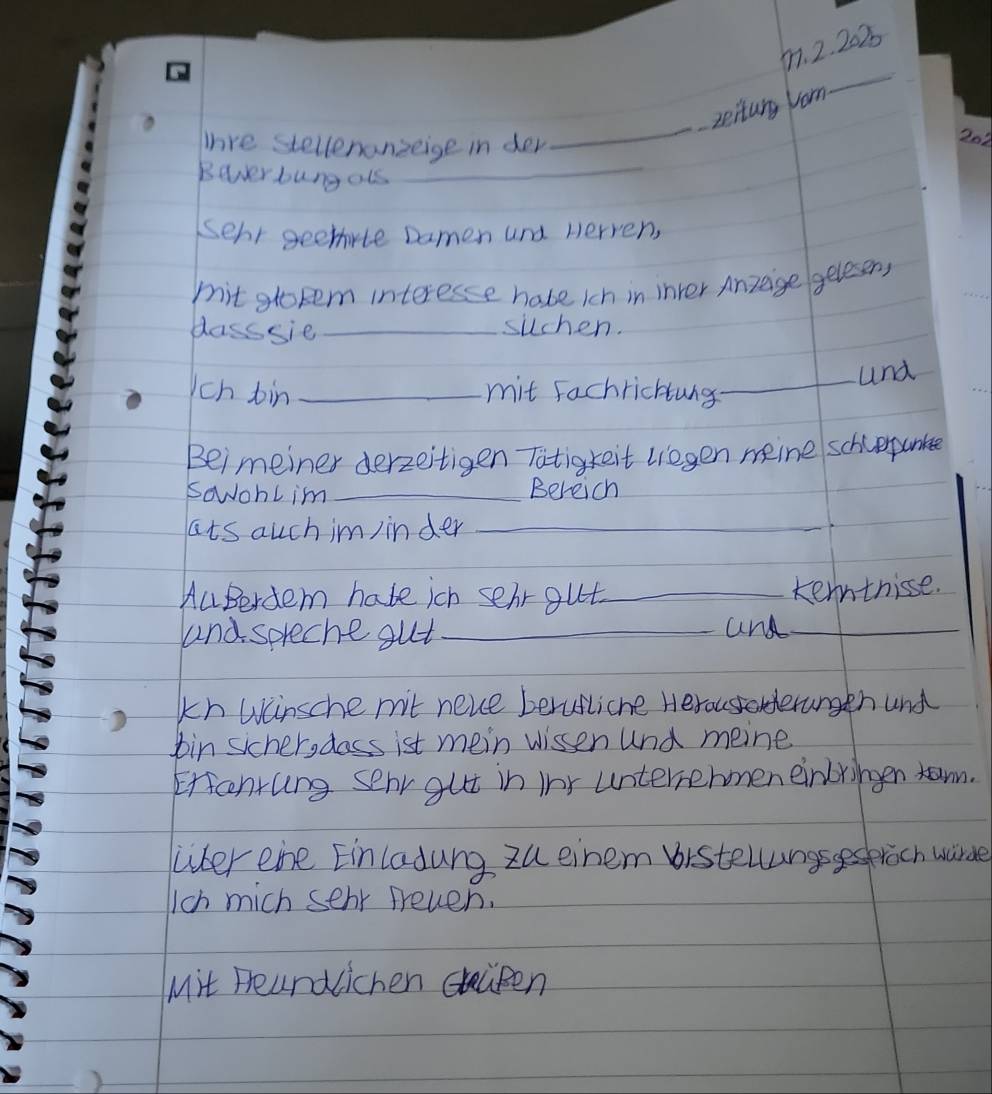 .2.2025
Ihre Stellenanzeige in der ________ zeitung vom ____
Bewerbung als ________
202
Sehr geehrte Damen und Herren,
mit großem interesse habe ich in ihrer Anzeige gelesen,
dass sie ________ suchen.
Ich bin ________ mit Fachrichtung ________ und
Bei meiner derzeitigen Tätigkeit liegen meine schwerpunkte
sowohl im ________ Bereich
als auch im/in der ________.
Außerdem habe ich sehr gut ________ kenntnisse.
und spreche gut ________ und ________
Ich wünsche mit neue berufliche Herausforderungen und
bin sicher, dass ist mein wissen und meine
Erfahrung sehr gut in Ihr unternehmen einbringen kann.
über eine Einladung zu einem Vorstellungsgespräch würde
Ich mich sehr freuen.
Mit Freundlichen Grüßen